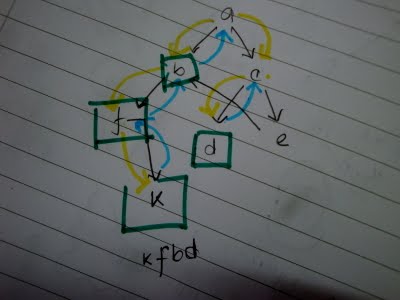 a
b c
f
d e
K
kfbd